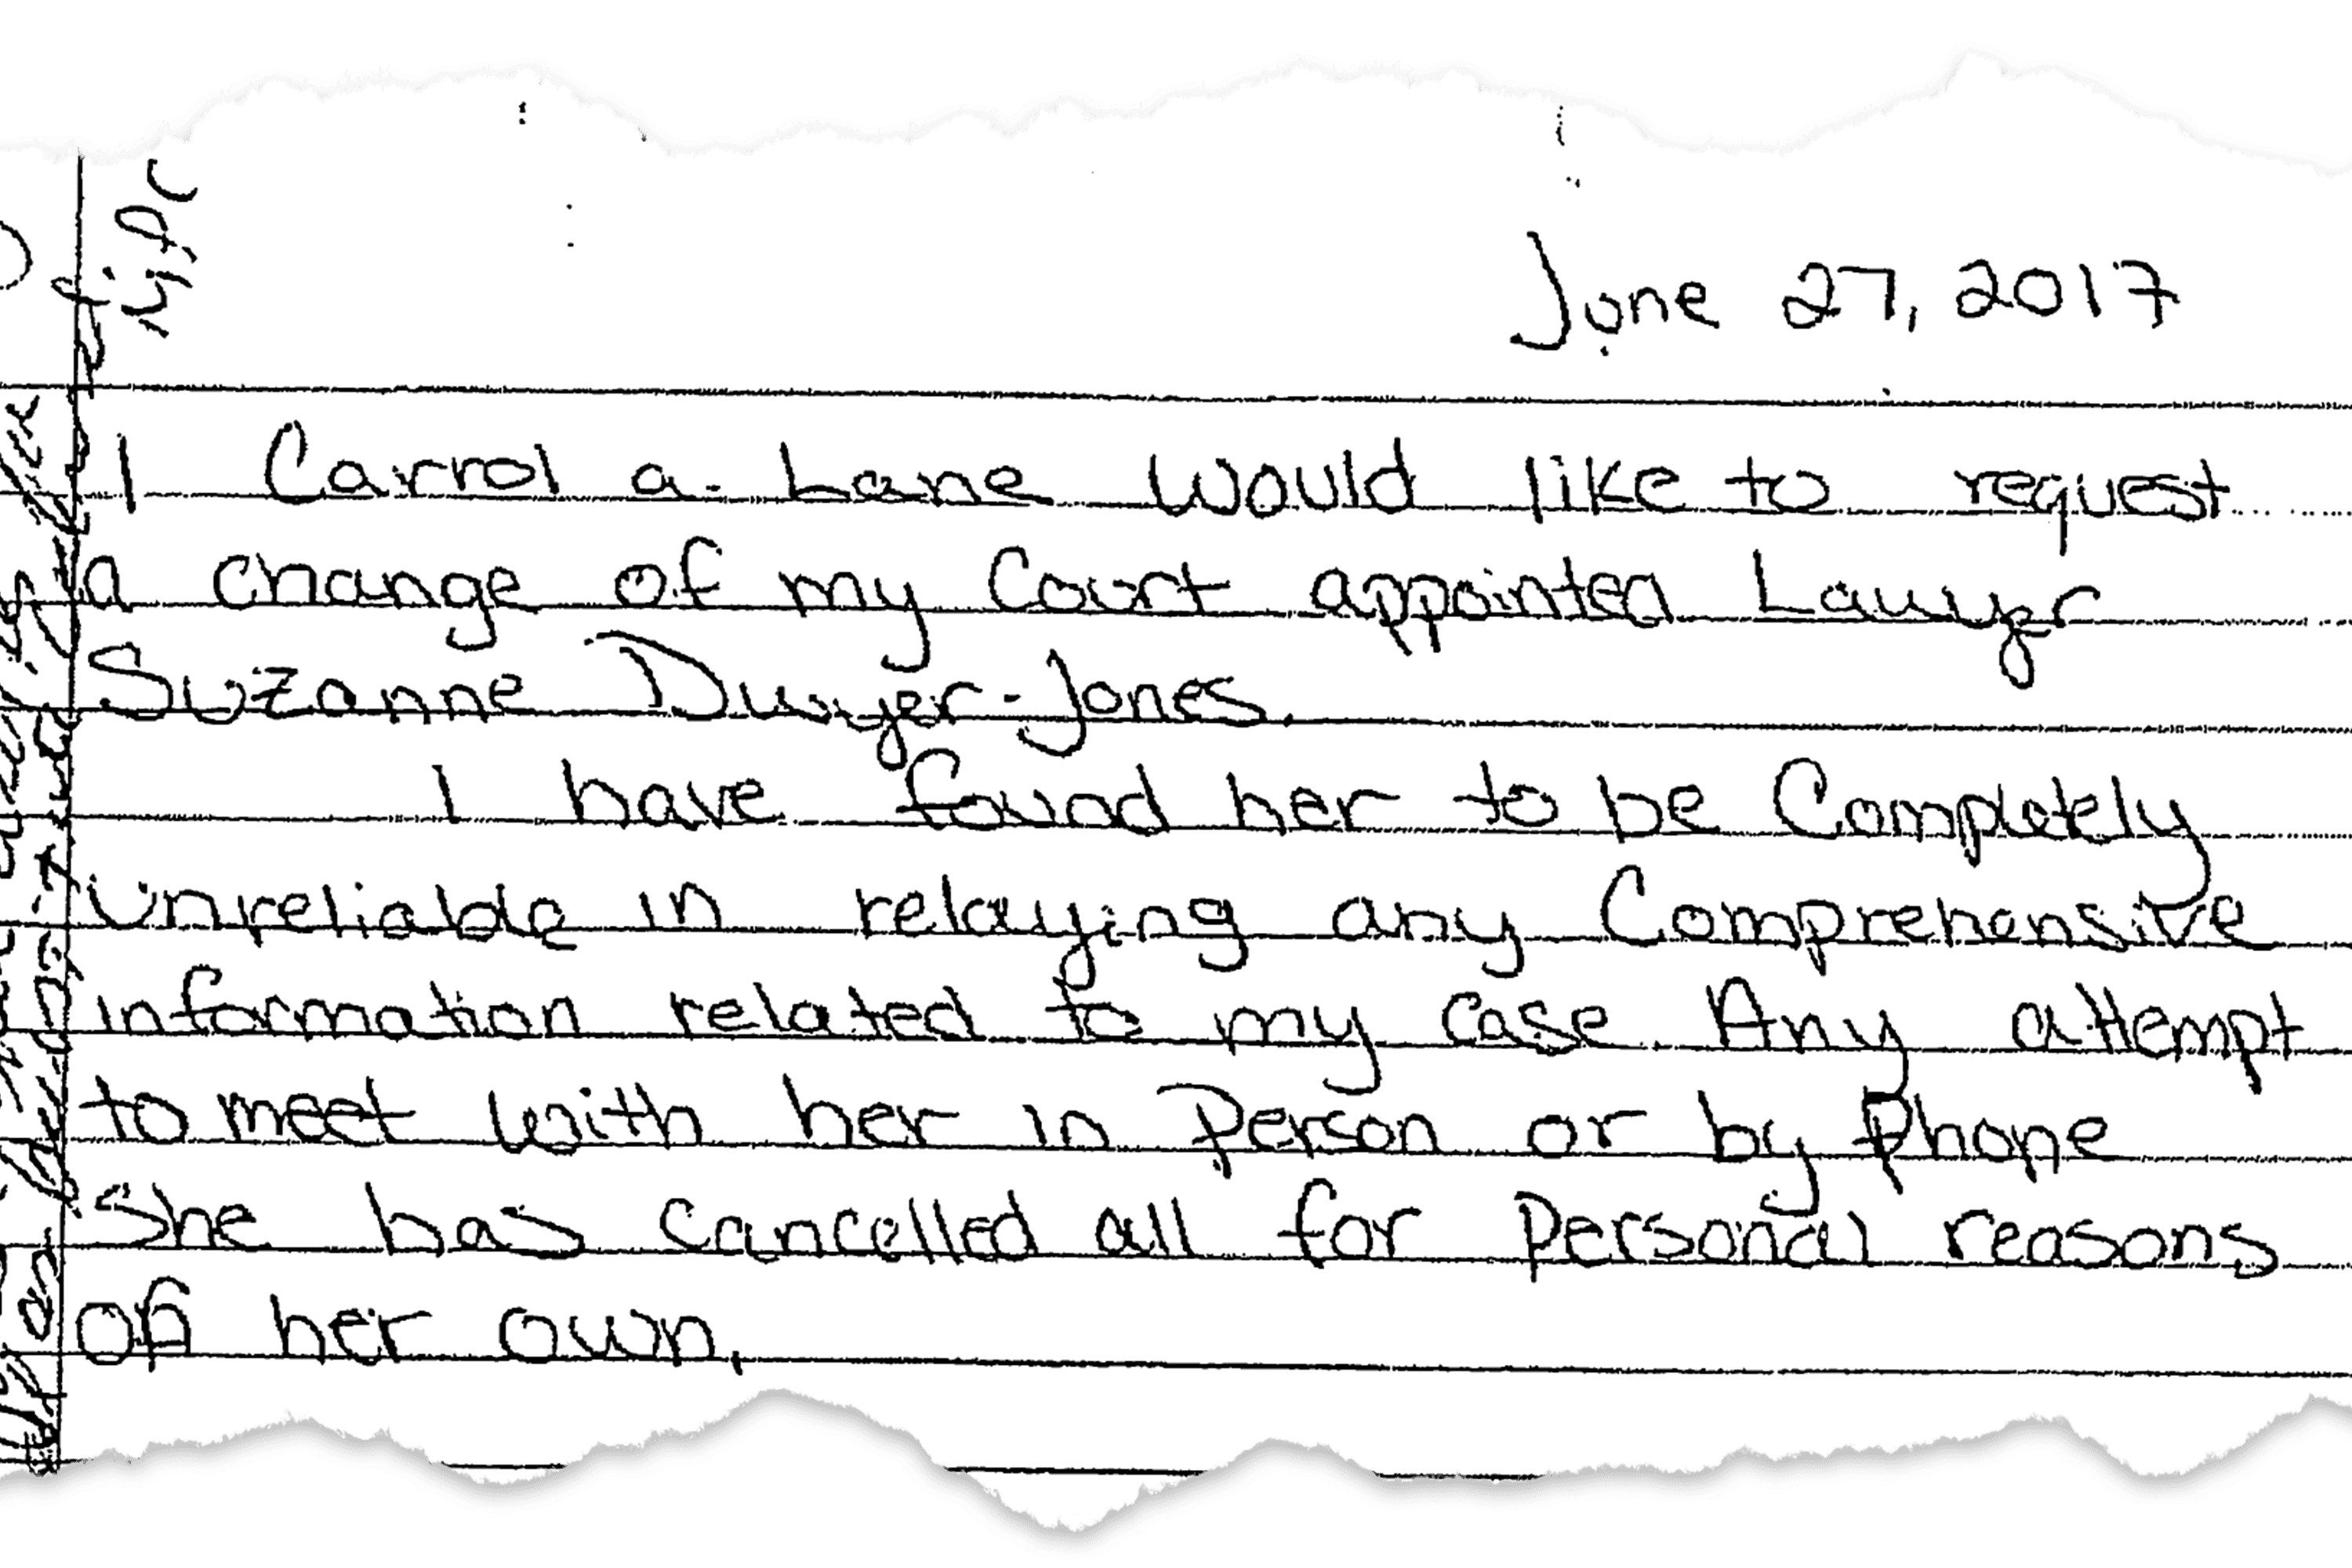 June 27, 2017
I Carrol a. Lane would like to request
a change of my Court appointed Lawyer
Suzanne Dwyer-Jones.
I have found her to be Completely
Unreliable in relaying any Comprehensive
information related to my case. Any attempt
to meet with her in Person or by Phone
She has cancelled all for Personal reasons
of her own.